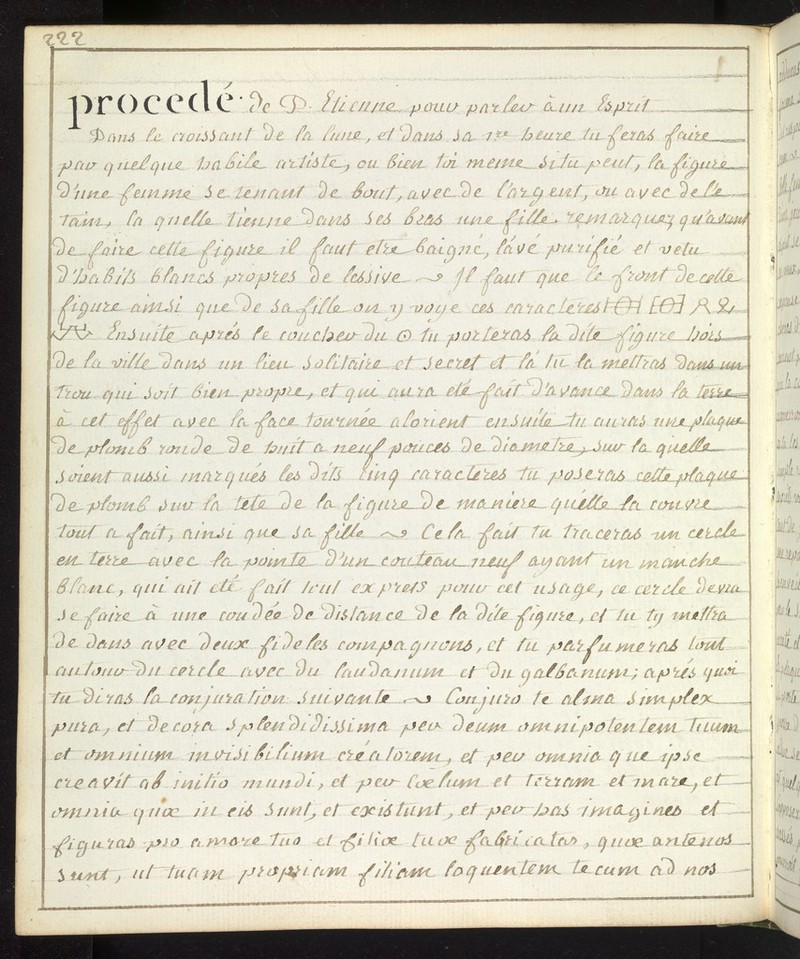 222
procedé. de D. Etienne pour parler à un Esprit
Dans le croissant de la lune, et dans sa 1re heure tu feras faire
par quelque habile artiste, ou bien toi meme si tu peut, la figure
d'une femme se tenant de bout, avec de l'argent, ou avec de l'e
tain, la quelle tienne dans ses bras une fille. remarquez qu'avant
de faire cette figure il faut etre baigné, lavé purifié et vetu
d'habits blancs propres de lessive ~ Il faut que le front de cette
figure ainsi que de sa fille on y voye ces caracteres
Ensuite aprés le coucher du ☉ tu porteras la dite figure hors
de la ville dans un lieu solitaire et secret et lá tu la mettras dans un
trou qui soit bien propre, et qui aura eté fait d'avance dans la terre
à cet effet avec la face tournée alorient ensuite tu auras une plaque
de plomb ronde de huit a neuf pouces de diametre, sur la quelle
soient aussi marqués les dits cinq caracteres tu poseras cette plaque
de plomb sur la tete de la figure de maniere qu'elle la couvre
tout a fait, ainsi que sa fille ~ Cela fait tu traceras un cercle
en terre avec la pointe d'un couteau neuf ayant un manche
blanc, qui ait eté fait tout exprets pour cet usage, ce cercle devra
se faire à une coudée de distance de la dite figure, et tu ty mettra
de dans avec deux fideles compagnons, et tu parfumeras tout
autour du cercle avec du laudanum et du galbanum; aprés quoi
tu diras la conjuration suivante ~ Conjuro te alma simplex
pura, et decora splendidissima per deum omnipotentem tuum
et omnium invisibilium créatorem, et per omnia que ipse
creavit ab initio mundi, et per Cœlum et terram et mare, et
omnia quæ in eis sunt, et existunt, et per has imagines et
figuras pro amore tuo et filiæ tuæ fabricatas, quæ ante nos
sunt, ut tuam propriam filiam loquentem tecum ad nos